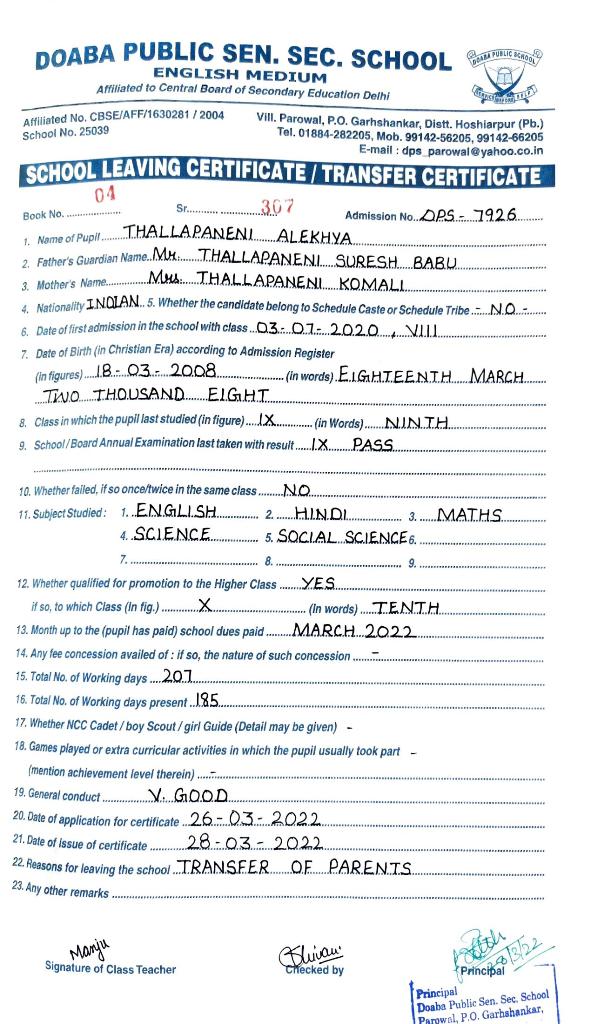 DOABA PUBLIC SEN. SEC. SCHOOL
ENGLISH MEDIUM
Affiliated to Central Board of Secondary Education Delhi
DOABA PUBLIC SCHOOL
Affiliated No. CBSE/AFF/1630281 / 2004
School No. 25039
Vill. Parowal, P.O. Garhshankar, Distt. Hoshiarpur (Pb.)
Tel. 01884-282205, Mob. 99142-56205, 99142-66205
E-mail : dps_parowal@yahoo.co.in
SCHOOL LEAVING CERTIFICATE / TRANSFER CERTIFICATE
Book No. 04 Sr. 307 Admission No. DPS - 7926
1. Name of Pupil THALLAPANENI ALEKHYA
2. Father's Guardian Name Mr. THALLAPANENI SURESH BABU
3. Mother's Name Mrs. THALLAPANENI KOMALI
4. Nationality INDIAN 5. Whether the candidate belong to Schedule Caste or Schedule Tribe - NO -
6. Date of first admission in the school with class 03-07-2020 , VIII
7. Date of Birth (in Christian Era) according to Admission Register
(in figures) 18-03-2008 (in words) EIGHTEENTH MARCH
TWO THOUSAND EIGHT
8. Class in which the pupil last studied (in figure) IX (in Words) NINTH
9. School / Board Annual Examination last taken with result IX PASS
10. Whether failed, if so once/twice in the same class NO
11. Subject Studied : 1. ENGLISH 2. HINDI 3. MATHS
4. SCIENCE 5. SOCIAL SCIENCE 6.
7. 8. 9.
12. Whether qualified for promotion to the Higher Class YES
if so, to which Class (In fig.) X (In words) TENTH
13. Month up to the (pupil has paid) school dues paid MARCH 2022
14. Any fee concession availed of : if so, the nature of such concession -
15. Total No. of Working days 207
16. Total No. of Working days present 185
17. Whether NCC Cadet / boy Scout / girl Guide (Detail may be given) -
18. Games played or extra curricular activities in which the pupil usually took part -
(mention achievement level therein) -
19. General conduct V. GOOD
20. Date of application for certificate 26-03-2022
21. Date of Issue of certificate 28-03-2022
22. Reasons for leaving the school TRANSFER OF PARENTS
23. Any other remarks
Manju
28/3/22
Signature of Class Teacher Checked by Principal
Principal
Doaba Public Sen. Sec. School
Parowal, P.O. Garhshankar,